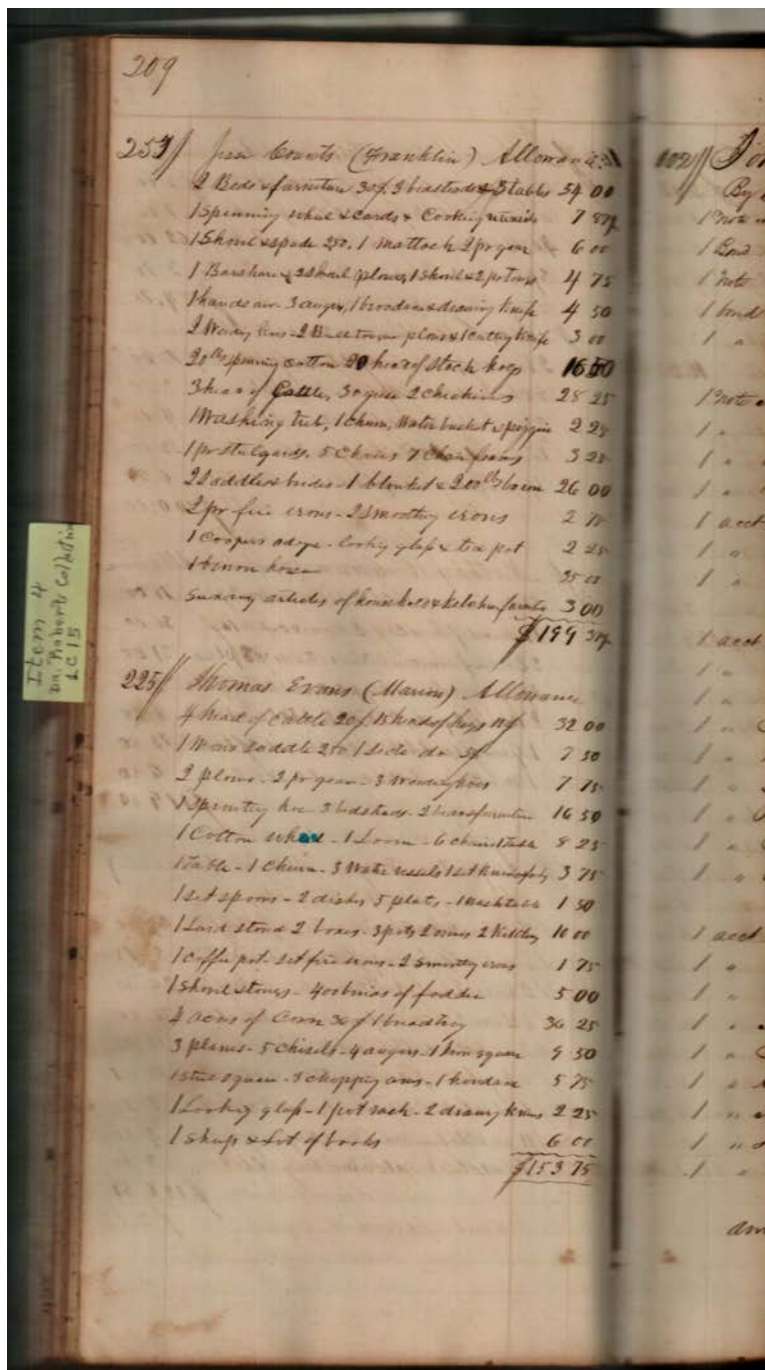 209
257// Counts (Franklin) Allowance
2 Beds & furniture 30/. 3 bedsteads & 3 tables 54 00
1 Spinning wheel & cards & Cooking utensils 7 87½
1 Shovel & spade 250, 1 Mattock 2 pr gear 6 00
1 Barshare & 2 Shovel plows, 1 Shovel & 2 pr 4 75
1 handsaw. 3 auger, 1 broadaxe & drawing knife 4 50
2 Weeding hoes - 2 Bull tongue plows & 1 Cutting Knife 3 00
20 lbs spinning cotton 20 head of Stock hogs 16 50
3 head of Cattle, 30 geese 2 chickens 28 25
1 Washing tub, 1 churn, Water bucket & piggin 2 25
1 pr stilyards. 5 Chairs 7 Chair frames 3 25
2 Saddles & brides - 1 blanket & 200 lbs bacon 26 00
2 pr fire irons - 2 Smoothing irons 2 75
1 Coopers adze - looking glass & tea pot 2 25
35 00
Sundry articles of household & kitchen furniture 3 00
$199 37½
225// Thomas Evans (Marion) Allowance
4 head of Cattle 20/. 15 head of hogs 32 00
1 Mans Saddle 250 1 Side do 5/ 7 50
2 plows - 2 pr gear - 3 Weeding hoes 7 75
1 hoe 3 bedsteads. 2 beds & furniture 16 50
1 Cotton wheel - 1 Loom - 6 chairs 8 25
1 Table - 1 Churn - 3 Water vessels 1 set Knives & forks 3 75
1 set spoons - 2 dishes 5 plates - 1 1 50
1 Lard stand 2 boxes - 3 pots 2 ovens 2 Kettles 10 00
1 coffee pot - set fire irons - 2 Smoothing irons 1 75
1 Shovel & tongs - 400 of fodder 5 00
4 acres of Corn 36/. 1 36 25
3 planes - 5 Chisels - 4 augers - 1 Iron square 9 50
1 steel square - 3 chopping axes - 1 5 75
1 Looking glass - 1 pot rack - 2 drawing knives 2 25
1 & Lot of books 6 00
$153 75
Item 4
Dr. Collection
LC 15
102//
By
1 Note
1 Bond
1 Note
1 bond
1 "
1 Note
1 "
1 "
1 "
1 acct
1 "
1 "
1 acct
1 "
1 "
1 "
1 "
1 "
1 "
1 "
1 "
1 acct
1 "
1 "
1 "
1 "
1 "
1 "
1 "
1 "